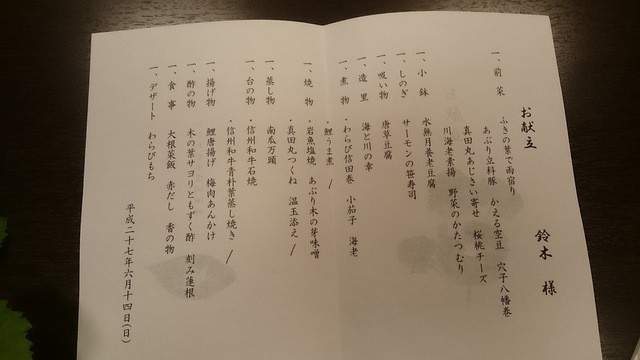 お献立　鈴木　様
一、前　菜　ふきの葉で雨宿り
あぶり立科豚　かえる空豆　穴子八幡巻
真田丸あじさい寄せ　桜桃チーズ
川海老素揚　野菜のかたつむり
一、小　鉢　水無月養老豆腐
一、しのぎ　サーモンの笹寿司
一、吸い物　唐草豆腐
一、造　里　海と川の幸
一、煮　物　・わらび信田巻　小茄子　海老
・鯉うま煮　/
一、焼　物　・岩魚塩焼　あぶり木の芽味噌
・真田丸つくね　温玉添え　/
一、蒸し物　南瓜万頭
一、台の物　・信州和牛石焼
・信州和牛青朴葉蒸し焼き　/
一、揚げ物　鯉唐揚げ　梅肉あんかけ
一、酢の物　木の葉サヨリともずく酢　刻み蓮根
一、食　事　大根菜飯　赤だし　香の物
一、デザート　わらびもち
平成二十七年六月十四日(日)